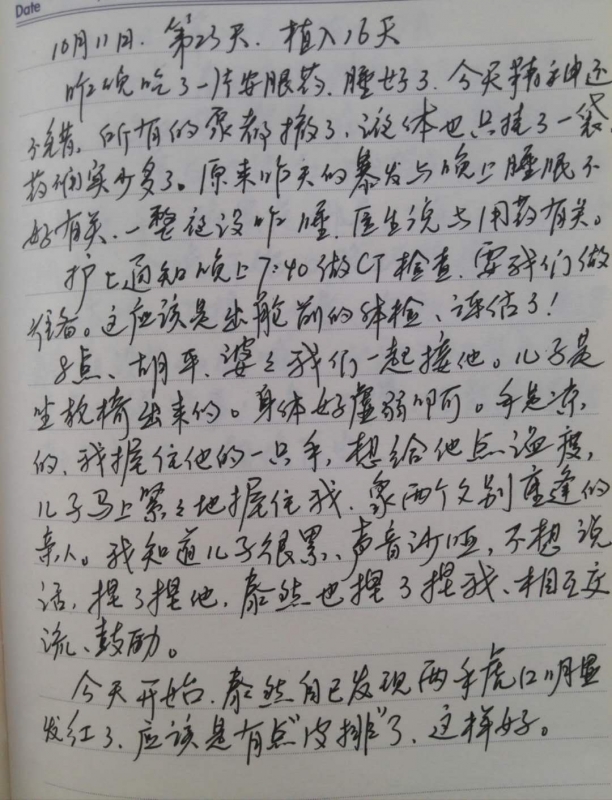 Date
10月11日. 第23天. 植入16天
昨晚吃了一片安眠药. 睡好了. 今天精神还
不错. 所有的泵都撤了. 液体也只挂了一袋
药确实少多了。原来昨天的暴发与晚上睡眠不
好有关. 一整夜没咋睡. 医生说与用药有关。
护士通知晚上7:40做CT检查. 要我们做
准备。这应该是出舱前的体检、评估了!
8点、胡平、婆婆我们一起接他。儿子是
坐轮椅出来的。身体好虚弱啊。手是凉
的. 我握住他的一只手, 想给他点温度,
儿子马上紧紧地握住我. 象两个久别重逢的
亲人。我知道儿子很累、声音沙哑, 不想说
话, 捏了捏他, 泰然也捏了捏我、相互交
流、鼓励。
今天开始. 泰然自己发现两手虎口明显
发红了. 应该是有点"皮排"了. 这样好。